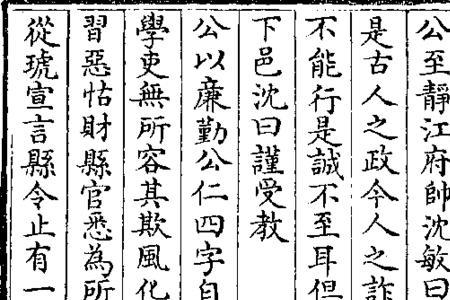 公至靜江府帥沈敏曰
是古人之政今人之詐
不能行是誠不至耳但
下邑沈曰謹受教
公以廉勤公仁四字自
學吏無所容其欺風化
習惡怙財縣官悉為所
從琥宣言縣令止有一